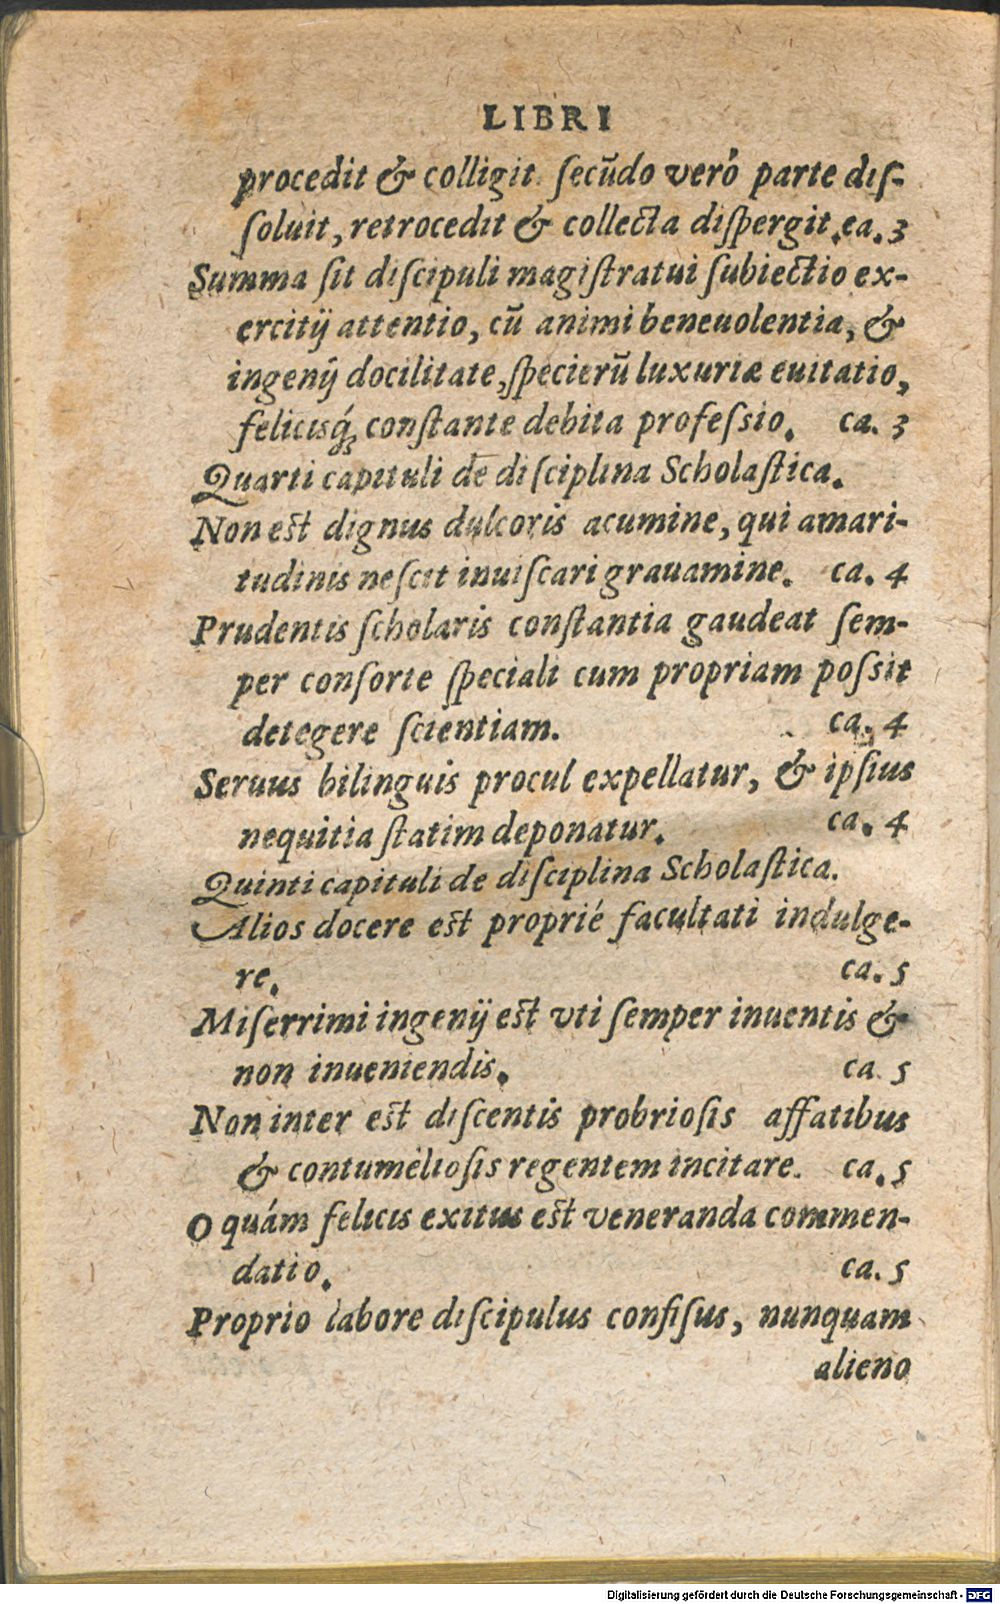 LIBRI
procedit & colligit. ſecūdo verò parte diſ-
ſoluit, retrocedit & collecta diſpergit. ca. 3
Summa ſit diſcipuli magiſtratui ſubiectio ex-
ercitij attentio, cū animi beneuolentia, &
ingenij docilitate, ſpecierū luxuriæ euitatio,
felicisq́ȝ conſtante debita profeſsio. ca. 3
Quarti capituli de diſciplina Scholaſtica.
Non eſt dignus dulcoris acumine, qui amari-
tudinis neſcit inuiſcari grauamine. ca. 4
Prudentis ſcholaris conſtantia gaudeat ſem-
per conſorte ſpeciali cum propriam poſsit
detegere ſcientiam. ca. 4
Seruus bilinguis procul expellatur, & ipſius
nequitia ſtatim deponatur. ca. 4
Quinti capituli de diſciplina Scholaſtica.
Alios docere eſt proprié facultati indulge-
re. ca. 5
Miſerrimi ingenij eſt vti ſemper inuentis &
non inueniendis. ca. 5
Non inter eſt diſcentis probrioſis affatibus
& contumelioſis regentem incitare. ca. 5
O quám felicis exitus eſt veneranda commen-
datio. ca. 5
Proprio labore diſcipulus confiſus, nunquam
alieno
Digitalisierung gefördert durch die Deutsche Forschungsgemeinschaft - DFG